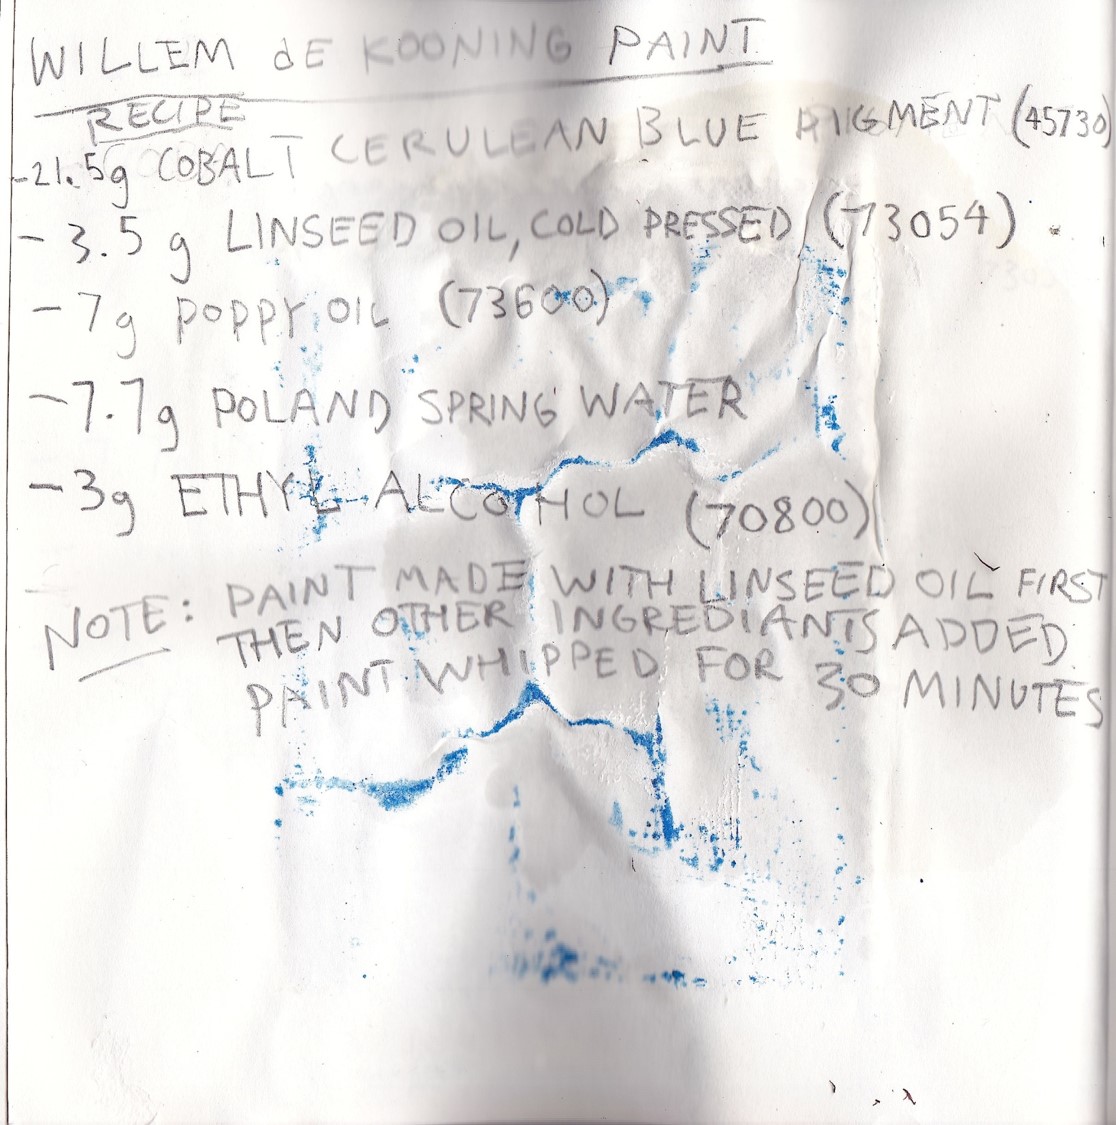 WILLEM dE KOONING PAINT
RECIPE
-21.5g COBALT CERULEAN BLUE PIGMENT (45730)
- 3.5 g LINSEED OIL, COLD PRESSED (73054)
- 7g POPPY OIL (73600)
-7.7g POLAND SPRING WATER
-3g ETHYL ALCOHOL (70800)
NOTE: PAINT MADE WITH LINSEED OIL FIRST
THEN OTHER INGREDIANTS ADDED
PAINT WHIPPED FOR 30 MINUTES